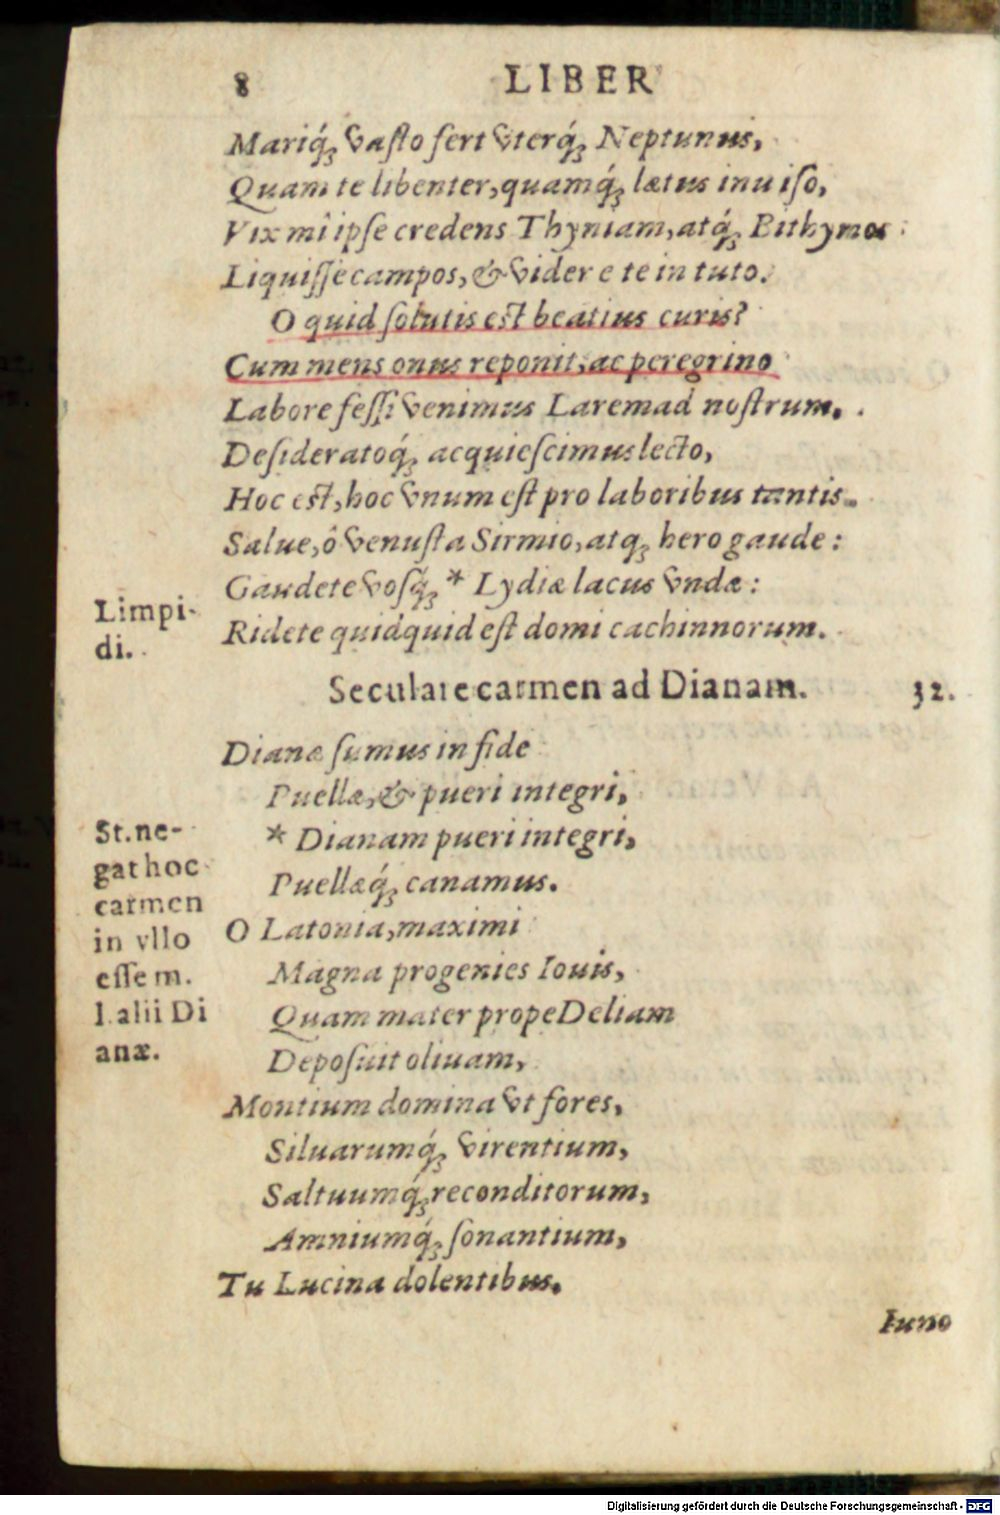 8 LIBER
Mariq́; vasto fert vterq́; Neptunus,
Quam te libenter, quamq́; lætus inuiso,
Vix mî ipse credens Thyniam, atq́; Bithynos
Liquisse campos, & videre te in tuto.
O quid solutis est beatius curis?
Cum mens onus reponit, ac peregrino
Labore fessi venimus Larem ad nostrum,
Desideratoq́; acquiescimus lecto,
Hoc est, hoc vnum est pro laboribus tantis.
Salue, ô venusta Sirmio, atq; hero gaude:
Gaudete vosq́; * Lydiæ lacus vndæ:
Ridete quidquid est domi cachinnorum.
Limpi-
di.
Seculare carmen ad Dianam. 32.
Dianæ sumus in fide
Puellæ, & pueri integri,
* Dianam pueri integri,
Puellæq́; canamus.
O Latonia, maximi
Magna progenies Iouis,
Quam mater prope Deliam
Deposuit oliuam,
Montium domina vt fores,
Siluarumq́; virentium,
Saltuumq́; reconditorum,
Amniumq́; sonantium,
Tu Lucina dolentibus.
St. ne-
gat hoc
carmen
in vllo
esse m.
l. alii Di
anæ.
Iuno
Digitalisierung gefördert durch die Deutsche Forschungsgemeinschaft - DFG